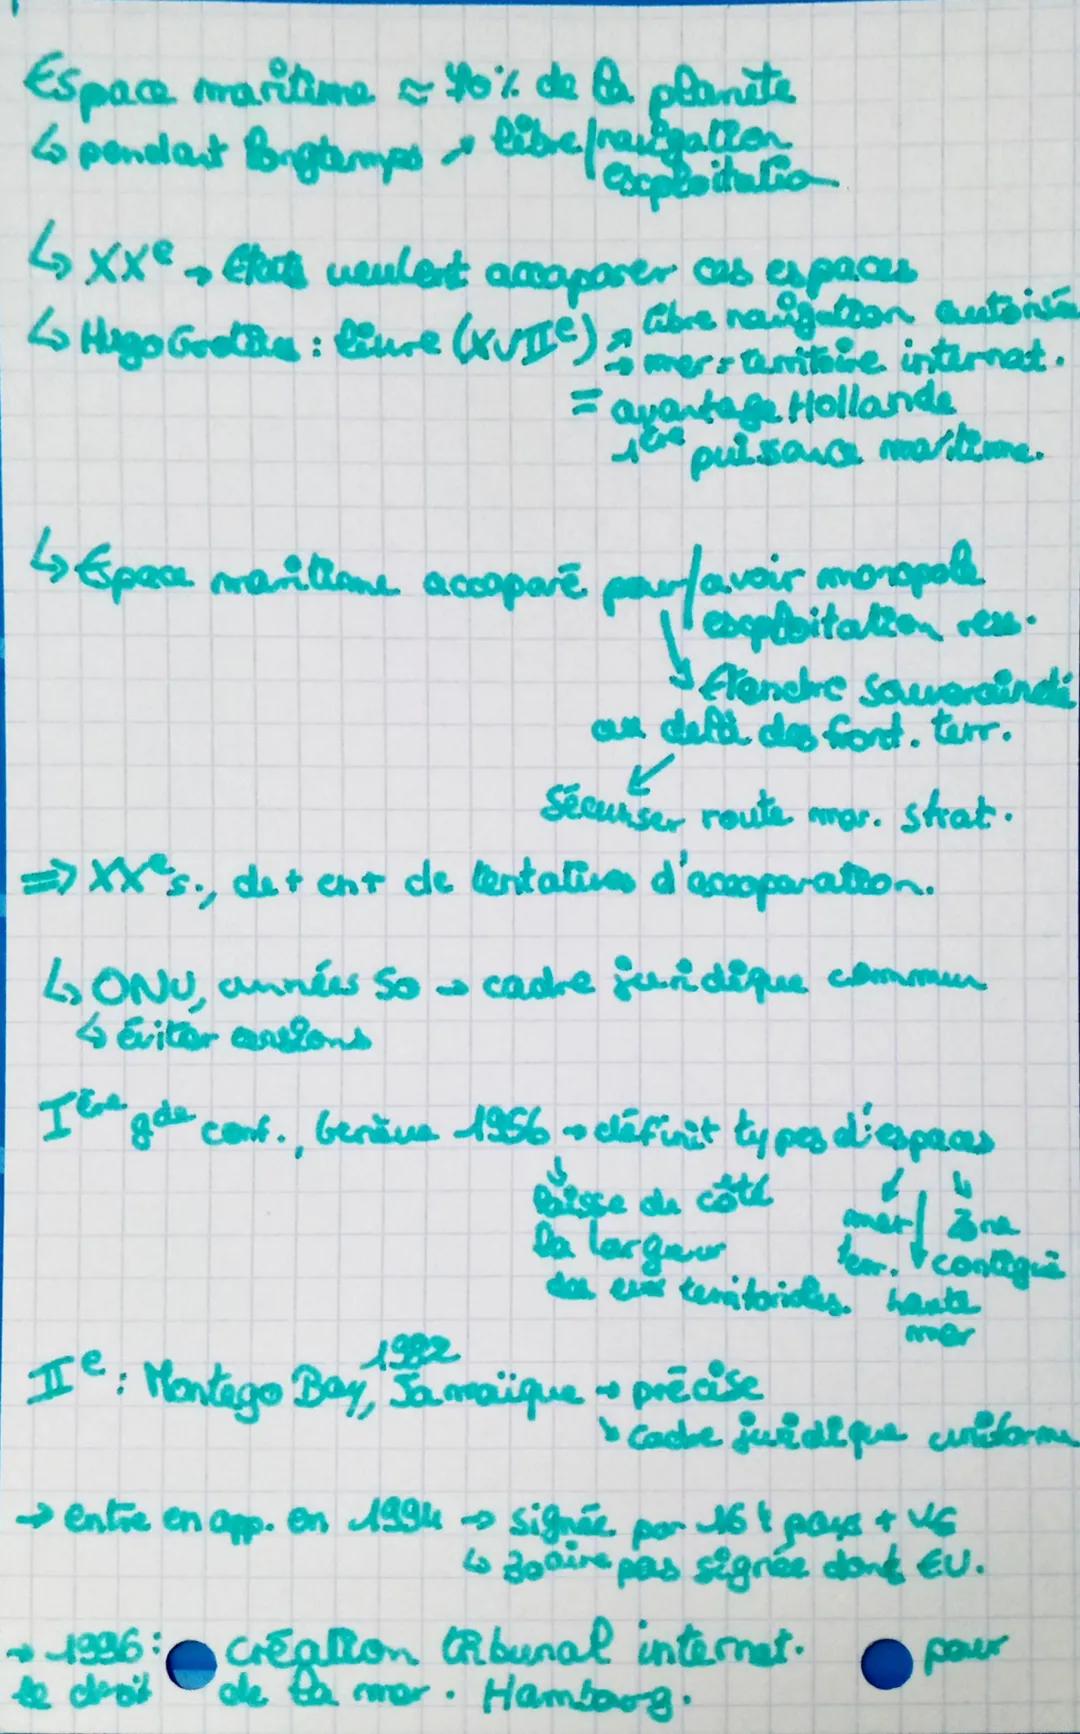 Espace maritime ≈ 70% de la planète
↳ pendant longtemps → libre/navigation
exploitation
↳ XXe → États veulent accaparer ces espaces
↳ Hugo Grotius : livre (XVIIe) → libre navigation autorisée
→ mer = territoire internat.
= avantage Hollande
1ère puissance maritime.
↳ Espace maritime accaparé pour/avoir monopole
exploitation ress.
Étendre souveraineté
au delà des front. terr.
Sécuriser route mar. strat.
⇒ XXe s., de + en + de tentatives d'accaparation.
↳ ONU, années 50 → cadre juridique commun
↳ éviter tensions
Ière gde conf., Genève 1956 → définit types d'espaces
laisse de côté
la largeur
des eux territoriales.
mer
terr.
haute
mer
zone
contiguë
IIe : Montego Bay, Jamaïque 1982 → précise
↘ cadre juridique uniforme
→ entre en app. en 1994 → signée par 167 pays + UE
↳ 30aine pas signée dont EU.
→ 1996 : création tribunal internat. pour
le droit de la mer. Hambourg.